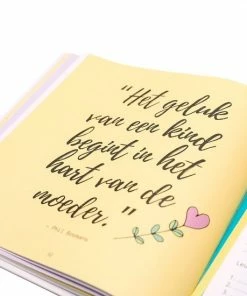 "Het geluk
van een kind
begint in het
hart van de
moeder."
- Phil Bosmans